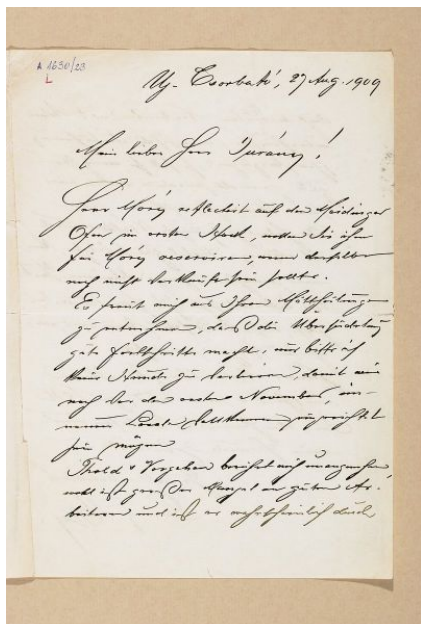 A 1630/23
L
Uj-Csorbató, 27 Aug. 1909
Mein lieber Herr Turány!
Herr Móry reflectirt auf den Meidinger
Ofen im ersten Stock, wollen Sie ihn
für Móry reserviren, wenn derselbe
noch nicht verkauft sein sollte.
Es freut mich aus Ihren Mittheilungen
zu entnehmen, daß die Übersiedelung
gute Fortschritte macht, nur bitte ich
keine Stunde zu verlieren, damit wir
noch vor dem ersten November, im
neuen Locale vollkommen eingerichtet
sein mögen
Vorgehen berührt mich unangenehm,
wohl ist großer Mangel an guten Ar-
beitern und ist er wahrscheinlich durch